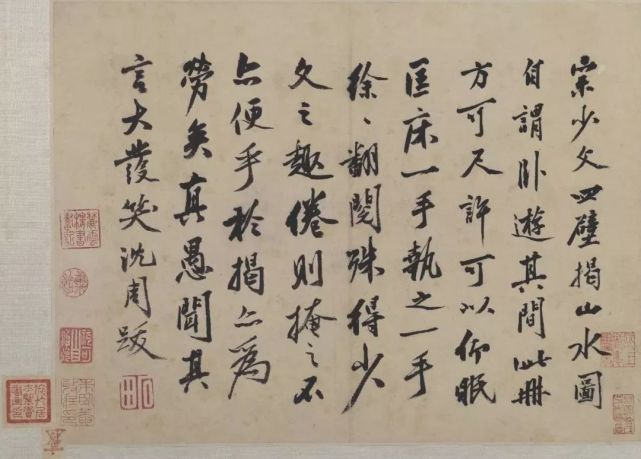 宗少文四壁揭山水圖
自謂卧遊其間此冊
方可尺許可以仰眠
匡床一手執之一手
徐〻翻閱殊得少
文之趣倦則掩之不
亦便乎於揭亦為
勞矣真愚聞其
言大發笑沈周跋
石田